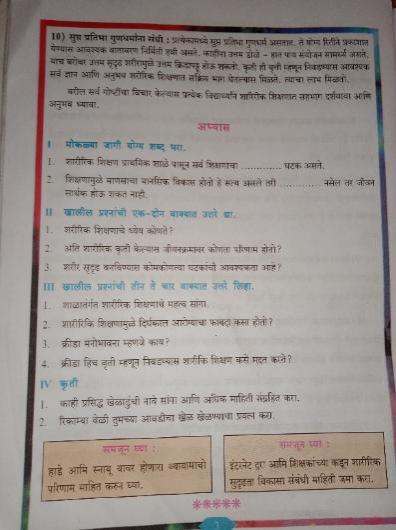 10) सुप्त प्रतिभा गुणधर्मांना संधी : प्रत्येकामध्ये सुप्त प्रतिभा गुणधर्म असतात. ते योग्य रितीने प्रकाशात
येण्यास आवश्यक वातावरण निर्मिती हवी असते. काहींना उत्तम डोळे - हात पाय संयोजन सामर्थ्य असते.
याच बरोबर उत्तम सुदृढ शरीरामुळे उत्तम क्रिडापटु होऊ शकतो. क्रीडा ही वृत्ती म्हणून निवडण्यास आवश्यक
सर्व ज्ञान आणि अनुभव शारीरिक शिक्षणात सक्रिय भाग घेतल्यास मिळते. त्याचा लाभ मिळतो.
वरील सर्व गोष्टींचा विचार केल्यास प्रत्येक विद्यार्थ्याने शारिरीक शिक्षणात सहभाग दर्शवावा आणि
अनुभव घ्यावा.
अभ्यास
I मोकळ्या जागी योग्य शब्द भरा.
1. शारीरिक शिक्षण प्राथमिक शाळे पासून सर्व शिक्षणाचा ............ घटक असते.
2. शिक्षणामुळे माणसाचा मानसिक विकास होतो हे सत्य असले तरी ............ नसेल तर जीवन
सार्थक होऊ शकत नाही.
II खालील प्रश्नांची एक-दोन वाक्यात उत्तरे द्या.
1. शारीरिक शिक्षणाचे ध्येय कोणते?
2. अति शारीरिक कृती केल्यास जीवनक्रमावर कोणता परिणाम होतो?
3. शरीर सुदृढ बनविण्यास कोणकोणत्या घटकांची आवश्यकता आहे?
III खालील प्रश्नांची तीन ते चार वाक्यात उत्तरे लिहा.
1. शाळांतर्गत शारीरिक शिक्षणाचे महत्व सांगा.
2. शारीरिक शिक्षणामुळे दिर्घकाल आरोग्याचा फायदा कसा होतो?
3. क्रीडा मनोभावना म्हणजे काय?
4. क्रीडा हिच वृत्ती म्हणून निवडण्यास शारीरिक शिक्षण कसे मदत करते?
IV कृती
1. काही प्रसिद्ध खेळाडुंची नावे सांगा आणि अधिक माहिती संग्रहित करा.
2. रिकाम्या वेळी तुमच्या आवडीचा खेळ खेळण्याचा प्रयत्न करा.
समजून घ्या :
हाडे आणि स्नायू यावर होणारा व्यायामाचो
परिणाम माहित करुन घ्या.
समजून घ्या :
इंटरनेट द्वारा आणि शिक्षकांच्या कडून शारीरिक
सुदृढता विकासा संबंधी माहिती जमा करा.